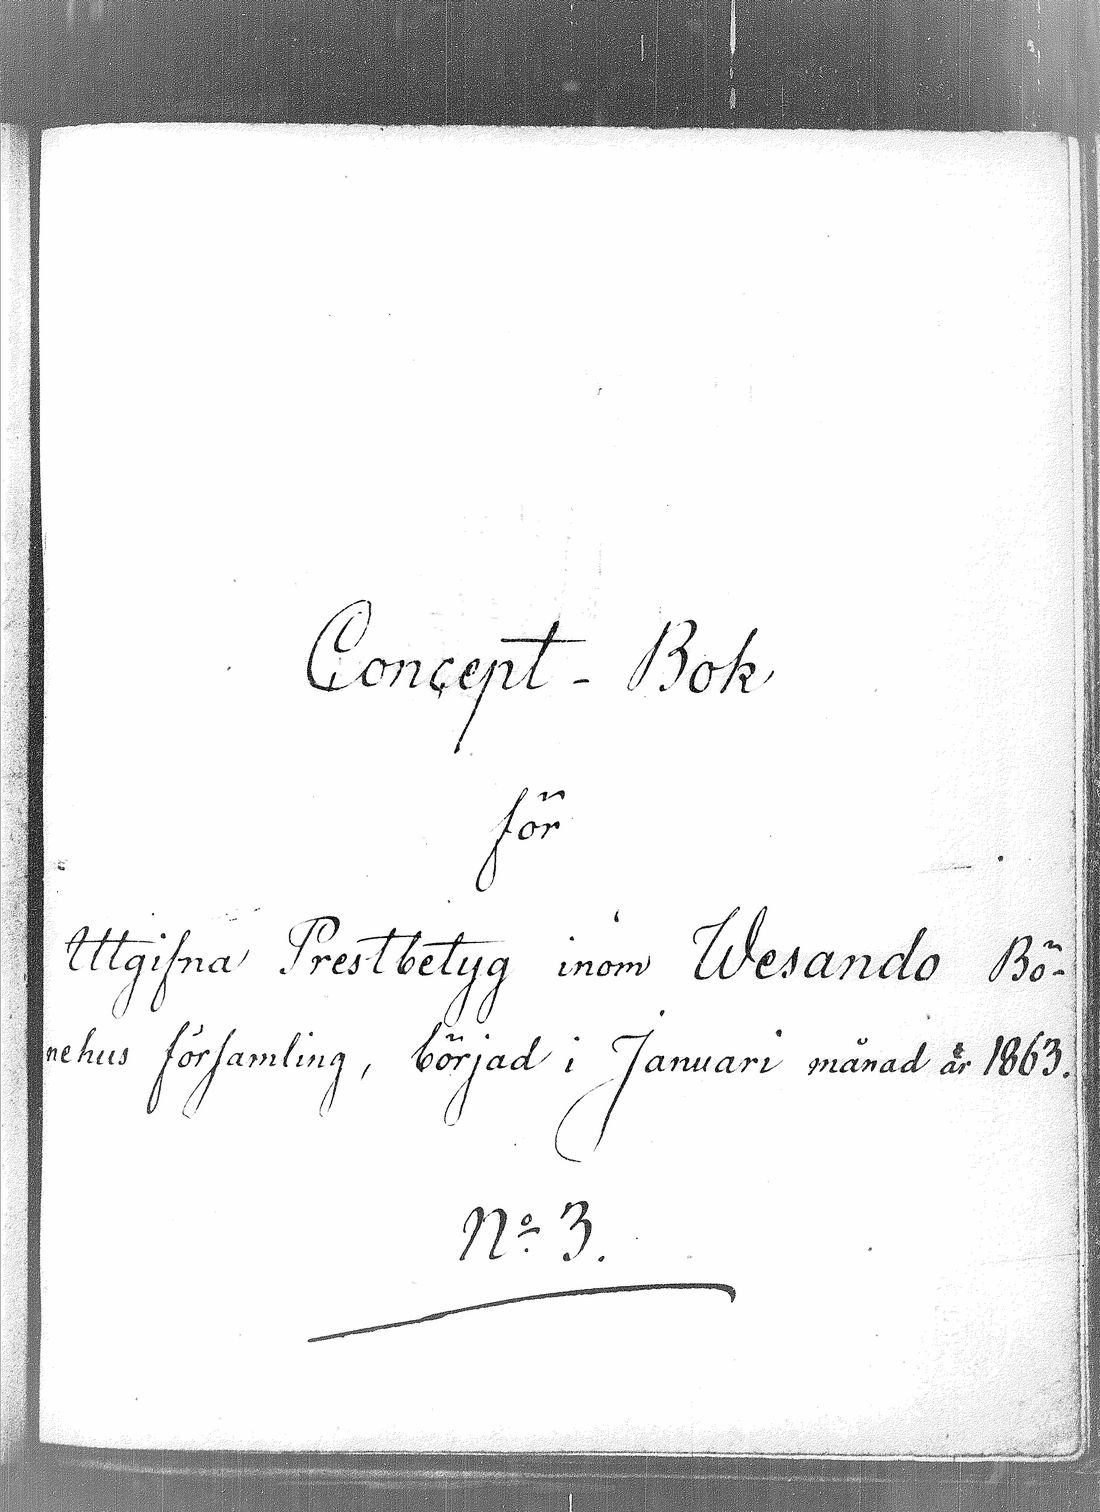 Concept - Bok
för
Utgifna Prestbetyg inom Wesando Bö-
nehus församling, börjad i Januari månad år 1863.
No 3.